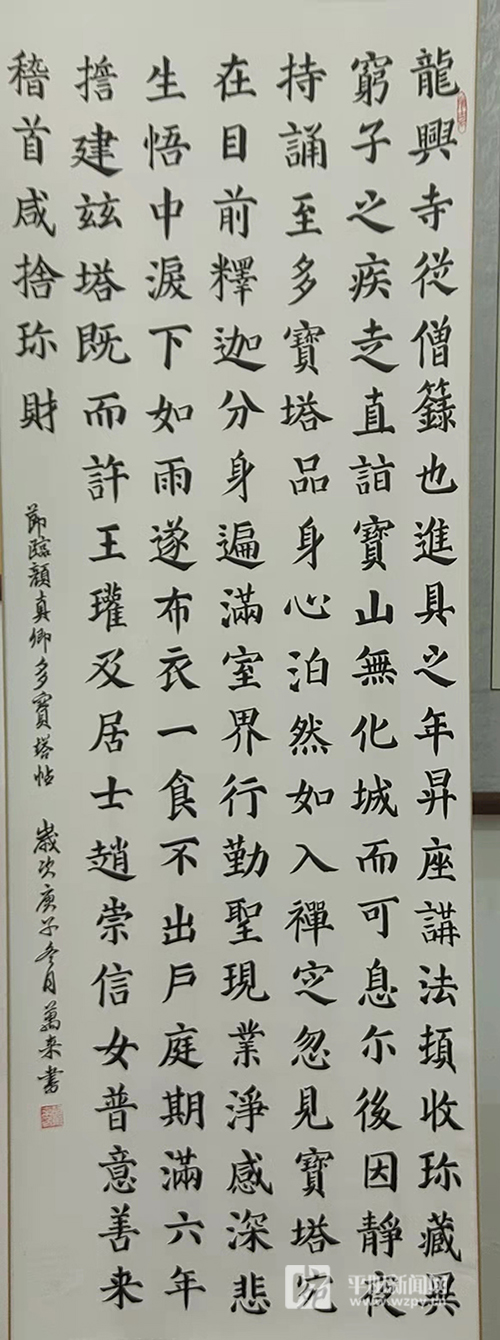 龍興寺從僧籙也進具之年昇座講法頓收珎藏異
窮子之疾走直詣寶山無化城而可息尒後因靜夜
持誦至多寶塔品身心泊然如入禪定忽見寶塔宛
在目前釋迦分身遍滿室界行勤聖現業淨感深悲
生悟中淚下如雨遂布衣一食不出戶庭期滿六年
誓建茲塔既而許王瓘及居士趙崇信女普意善来
稽首咸捨珎財
節臨顏真卿多寶塔帖 歲次庚子冬月萬来書
平阳新闻网